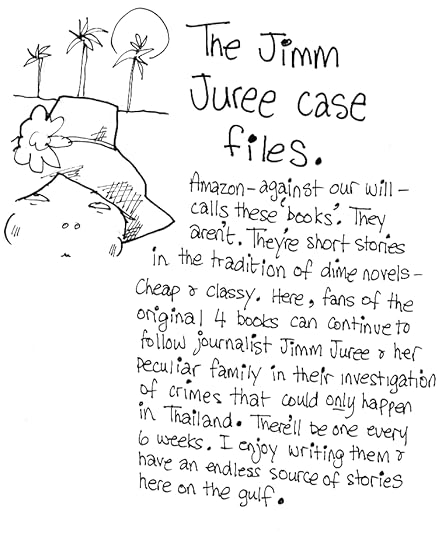 The Jimm
Juree case
files.
Amazon - against our will -
calls these 'books'. They
aren't. They're short stories
in the tradition of dime novels -
Cheap & classy. Here, fans of the
original 4 books can continue to
follow journalist Jimm Juree & her
peculiar family in their investigation
of crimes that could only happen
in Thailand. There'll be one every
6 weeks. I enjoy writing them &
have an endless source of stories
here on the gulf.